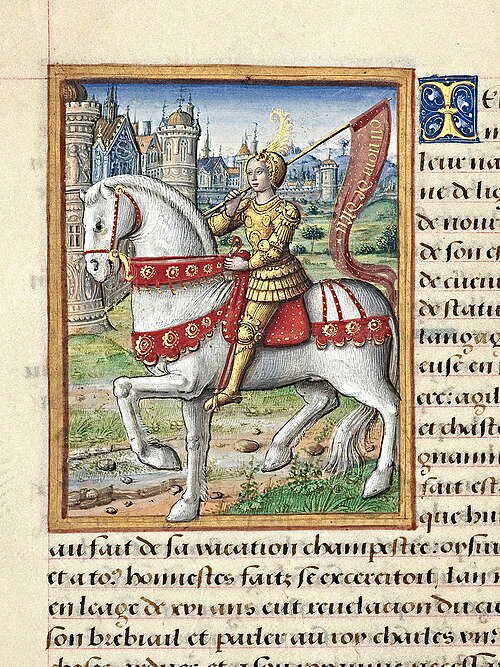 nom de
leur na
ne de lig
de nour
de son es
de cueur
de statu
langag
euse en
ere: agil
et chaste
gnanim
fait est
que hu
au fait de sa vacation champestre: oysiu
et a toꝰ honnestes faitz se exercitoit. lan
en leage de xvi ans eut reuelation
son brebiail et parler au roy charles
et a son